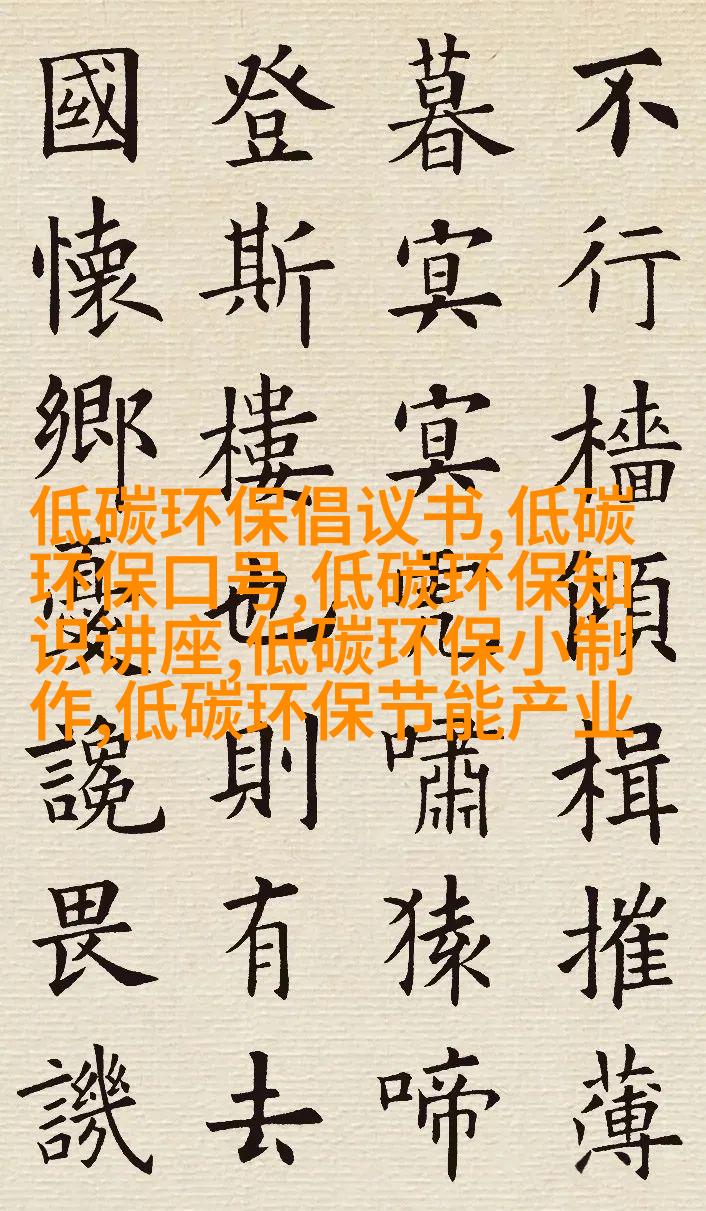 不行檣傾楫摧薄
暮冥冥虎嘯猿啼
登斯樓也則有去
國懷鄉憂讒畏譏
低碳环保倡议书,低碳
环保口号,低碳环保知
识讲座,低碳环保小制
作,低碳环保节能产业